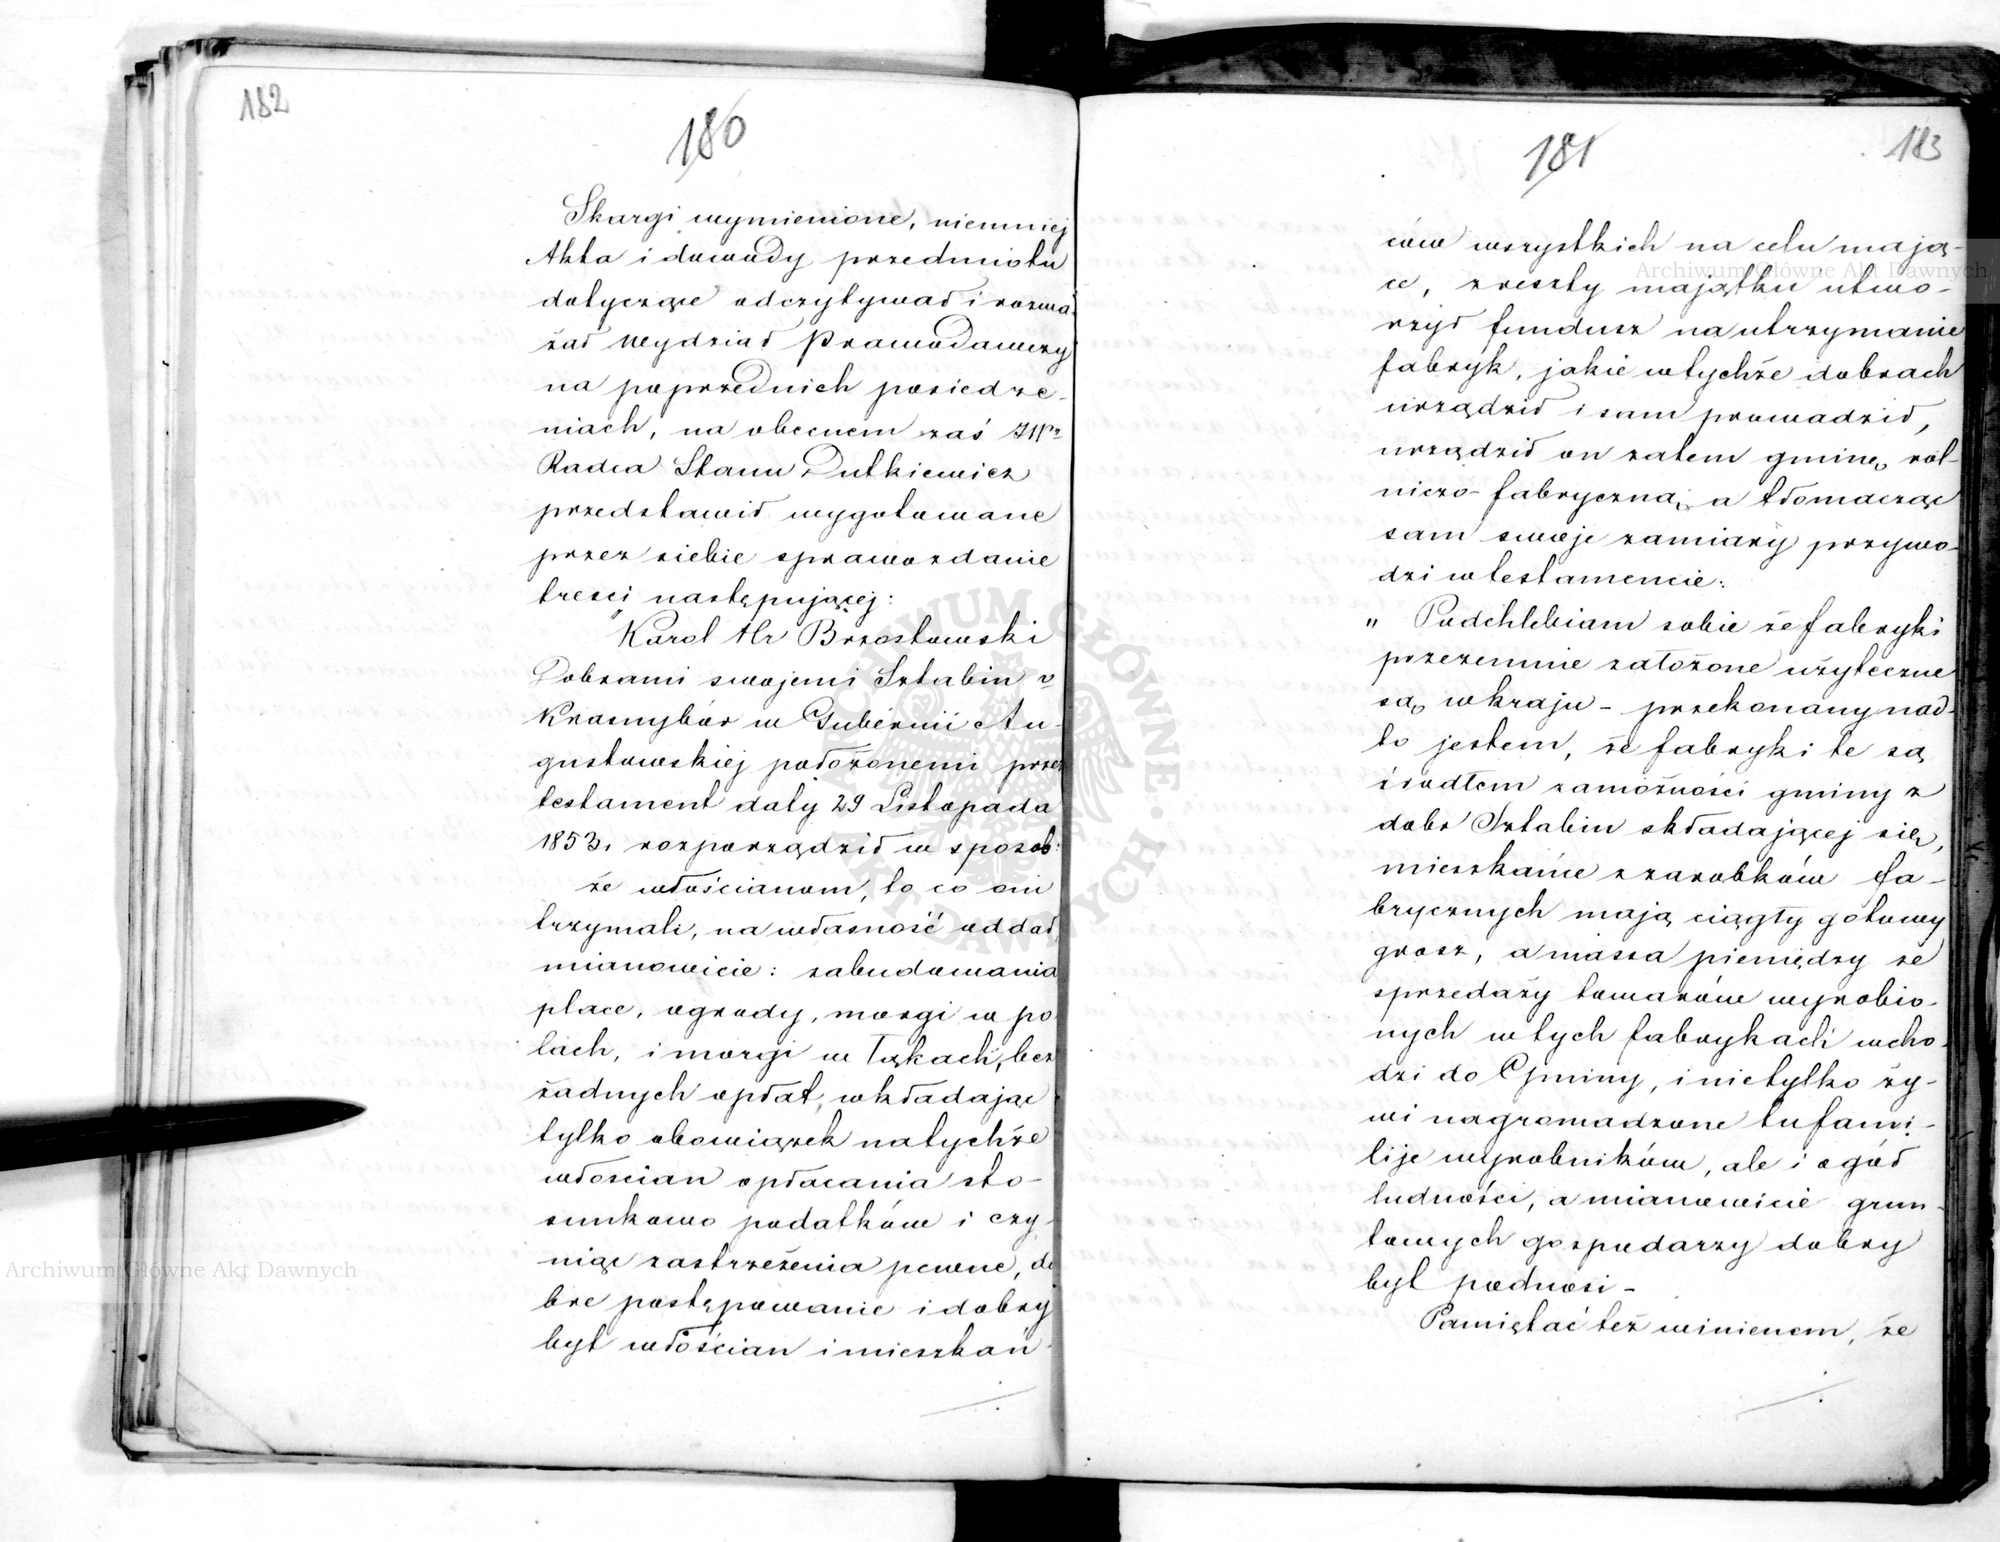 182
180
Skargi wymienione, niemniej
Akta i dowody przedmiotu
dotyczące odczytywał i rozwa-
żał Wydział Prawodawczy
na poprzednich posiedze-
niach, na obecnem zaś
Radca Stanu Dutkiewicz
przedstawił wygotowane
przez siebie sprawozdanie
tresci następującej:
"Karol Hr Brzostowski
Dobrami swojemi Sztabin v
Krasnybór w Gubernii Au-
gustowskiej położonemi przez
testament daty 29 Listopada
1853. rozporządził w sposób:
że włościanom, to co oni
trzymali, na własność oddał
mianowicie: zabudowania
place, ogrody, morgi w po
lach, i morgi w Łąkach, bez
żadnych opłat, wkładając
tylko obowiązek na tychże
włoscian opłacania sto-
sunkowo podatków i czy-
niąc zastrzeżenia pewne, do
bre postępowanie i dobry
byt włościan i mieszkań-
181
183
ców wszystkich na celu mają-
ce, z reszty majątku utwo-
rzył fundusz na utrzymanie
fabryk, jakie w tychże dobrach
urządził i sam prowadził,
urządził on zatem gminę rol-
niczo-fabryczną, a tłomacząc
sam swoje zamiary przywo-
dzi w testamencie:
" Podchlebiam sobie że fabryki
przezemnie założone użyteczne
są w kraju - przekonany nad-
to jestem, że fabryki te są
źrodłem zamożności gminy z
dobr Sztabin składającej się,
mieszkańce z zarobków fa-
brycznych mają ciągły gotowy
grosz, a massa pieniędzy ze
sprzedaży towarów wyrobio-
nych w tych fabrykach wcho-
dzi do Gminy, i nietylko ży-
wi nagromadzone tu fami-
lije wyrobników, ale i ogół
ludności, a mianowicie grun-
towych gospodarzy dobry
byt podnosi -
Pamiętać też winienem, że
Archiwum Główne Akt Dawnych
Archiwum Główne Akt Dawnych
ARCHIWUM GŁÓWNE AKT DAWNYCH